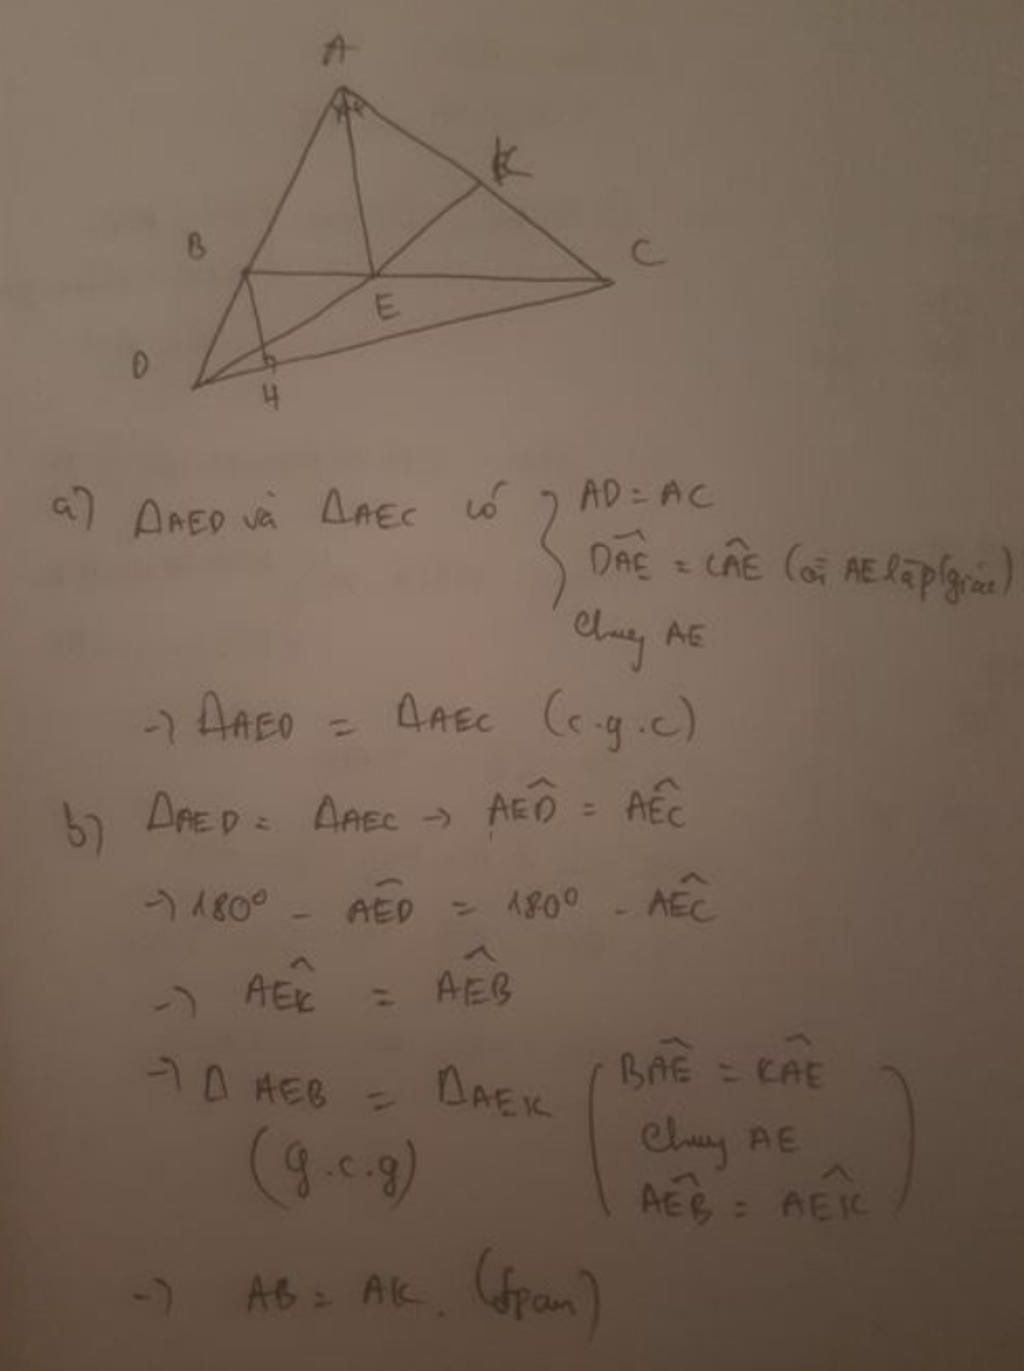 A
K
B
C
E
D
H
a) ΔAED và ΔAEC có { AD = AC
DÂE = CÂE (vì AE là p/giác)
Chung AE
-> ΔAED = ΔAEC (c.g.c)
b) ΔAED = ΔAEC -> AED̂ = AEĈ
-> 180° - AÊD = 180° - AÊC
-> AEK̂ = AÊB
-> Δ AEB = ΔAEK ( BÂE = KÂE
(g.c.g) Chung AE
AÊB = AÊK )
-> AB = AK. (đpcm)